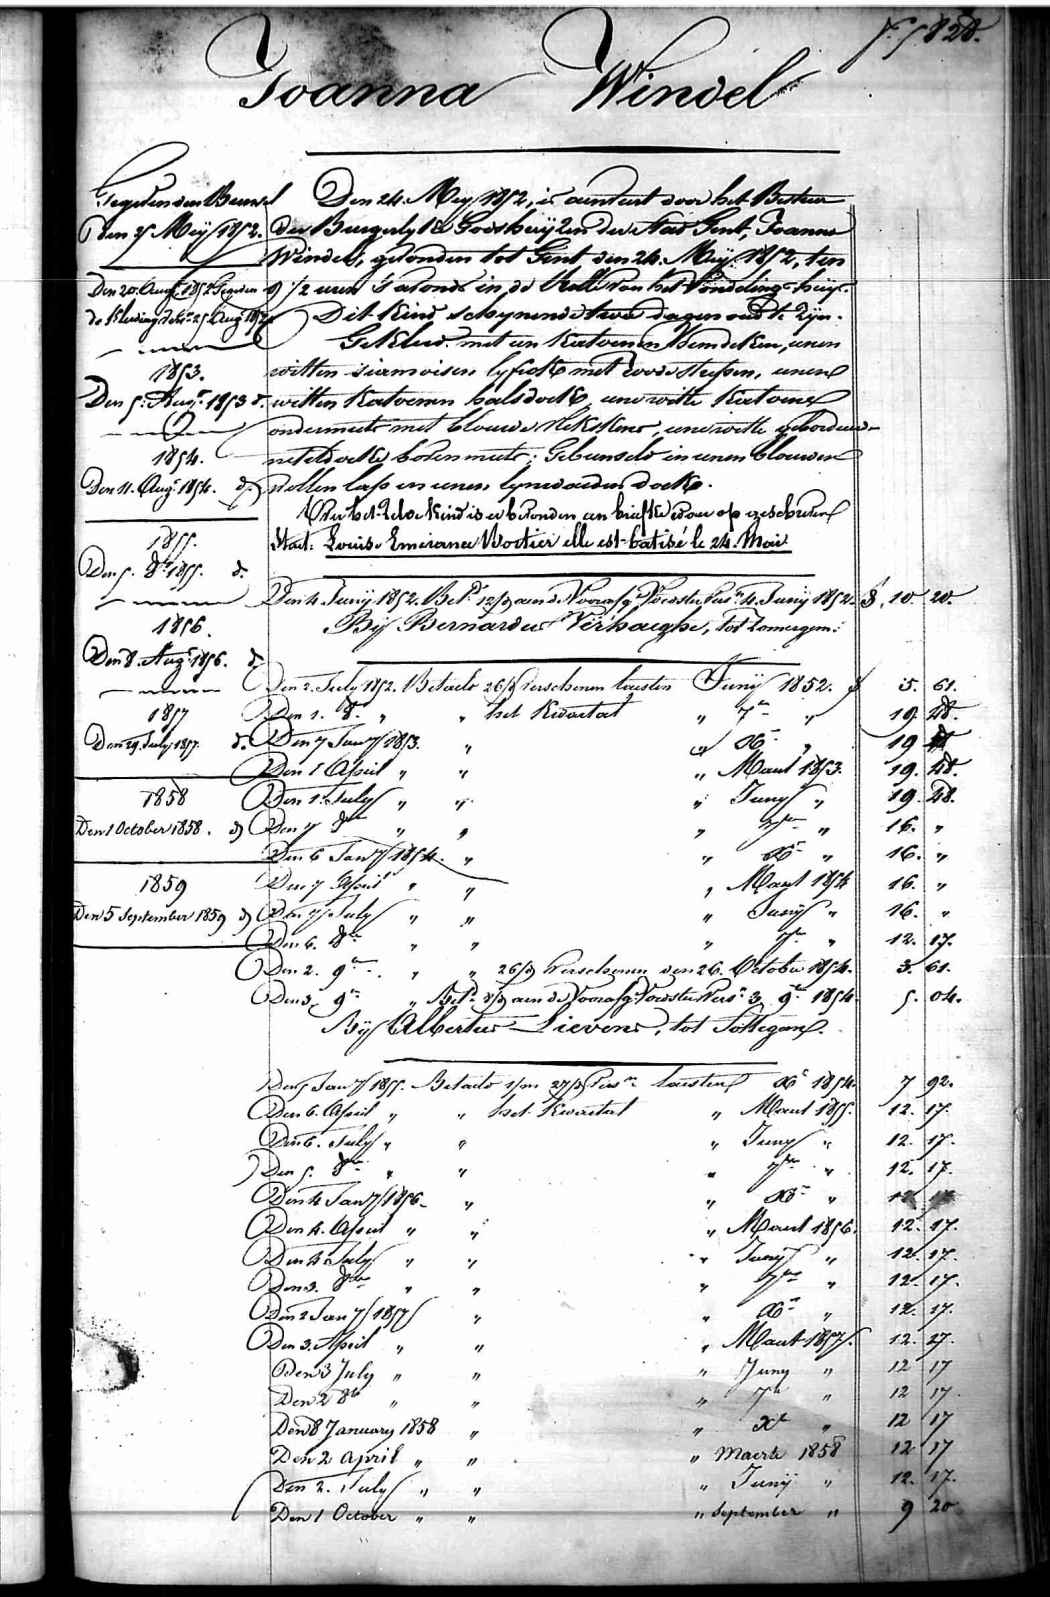 Joanna Windel
Gegeven den Bunsel
Den 25 Meij 1852.
Den 20 Aug. 1852 Gegeven
de Kleeding
1853.
Den 5. Augt. 1853 d.
1854.
Den 11. Augt. 1854. d.
1855.
Den 5. 8br 1855. d.
1856.
Den 8. Augt. 1856. d.
1857
Den 29. July 1857. d.
1858
Den 1 October 1858. d
1859
Den 5 September 1859 d
Den 24 Meij 1852, is aenveert door het Bestuer
der Burgerlyke Godshuijzen der Stad Gent, Joanna
Windel, gevonden tot Gent den 24. Meij 1852, ten
9 1/2 uren s'avonds in de Rolle van het Vondeling-huijs.
Dit Kind schijnende twee dagen oud te Zijn.
Gekleed met een Katoenen Hemdeken, eenen
witten siamoisen lyfrok met roode streepen, eenen
witten Katoenen halsdoek, eene witte Katoene
ondermuts met blauwe , eene witte
neteldoeke bovenmuts; Gebunseld in eenen blauwen
wollen lap en eenen lynwaeden doek.
Over het zelve Kind is er bevonden een briefke waer op geschreven
staet: Louise Emerance Wostier elle est batisé le 24. Mai
Den 4 Junij 1852. Betd. 12/d aen de Voedster 4. Junij 1852. 10. 20.
Bij Bernardus Verhaeghe, tot Zomergem:
Den 2. July 1852. Betaeld 26/d verschenen laesten Junij 1852. 5. 61.
Den 1. 8. " " het Kwartael " 7br " 19. 28.
Den 7 Jany 1853. " " Xbr " 19
Den 1 April " " " Maert 1853. 19. 28.
Den 1. July " " " Junij " 19. 28.
Den 7 8br " " " 7br " 16. "
Den 6 Jany 1854. " " Xbr " 16. "
Den 7 April " " " Maert 1854 16. "
Den 7 July " " " Junij " 16. "
Den 6. 8br " " " 7br " 12. 17.
Den 2. 9br " " 26/d Verschenen den 26. October 1854. 3. 61.
Den 3. 9br " Betd. aen de Voedster 3 9br 1854. 5. 04.
Bij Albertus Lievens, tot Sottegem.
Den 5 Jany 1855. Betaeld 1/m 27/d Versn. laesten Xbr 1854. 7 92.
Den 6. April " " het Kwartael " Maert 1855. 12. 17.
Den 6. July " " " Junij " 12. 17.
Den 5. 8br " " " 7br " 12. 17.
Den 4 Jany 1856. " " Xbr " 12 17
Den 4. April " " " Maert 1856. 12. 17.
Den 4 July " " " Junij " 12. 17.
Den 3. 8br " " " 7br " 12. 17.
Den 2 Jany 1857 " " Xbr " 12. 17.
Den 3. April " " " Maert 1857. 12. 27.
Den 3 July " " " Juny " 12 17
Den 2 8b " " " 7b " 12 17.
Den 8 January 1858 " " Xb " 12 17
Den 2 April " " " Maerte 1858 12 17
Den 2. July " " " Junij " 12. 17.
Den 1 October " " " September " 9 20